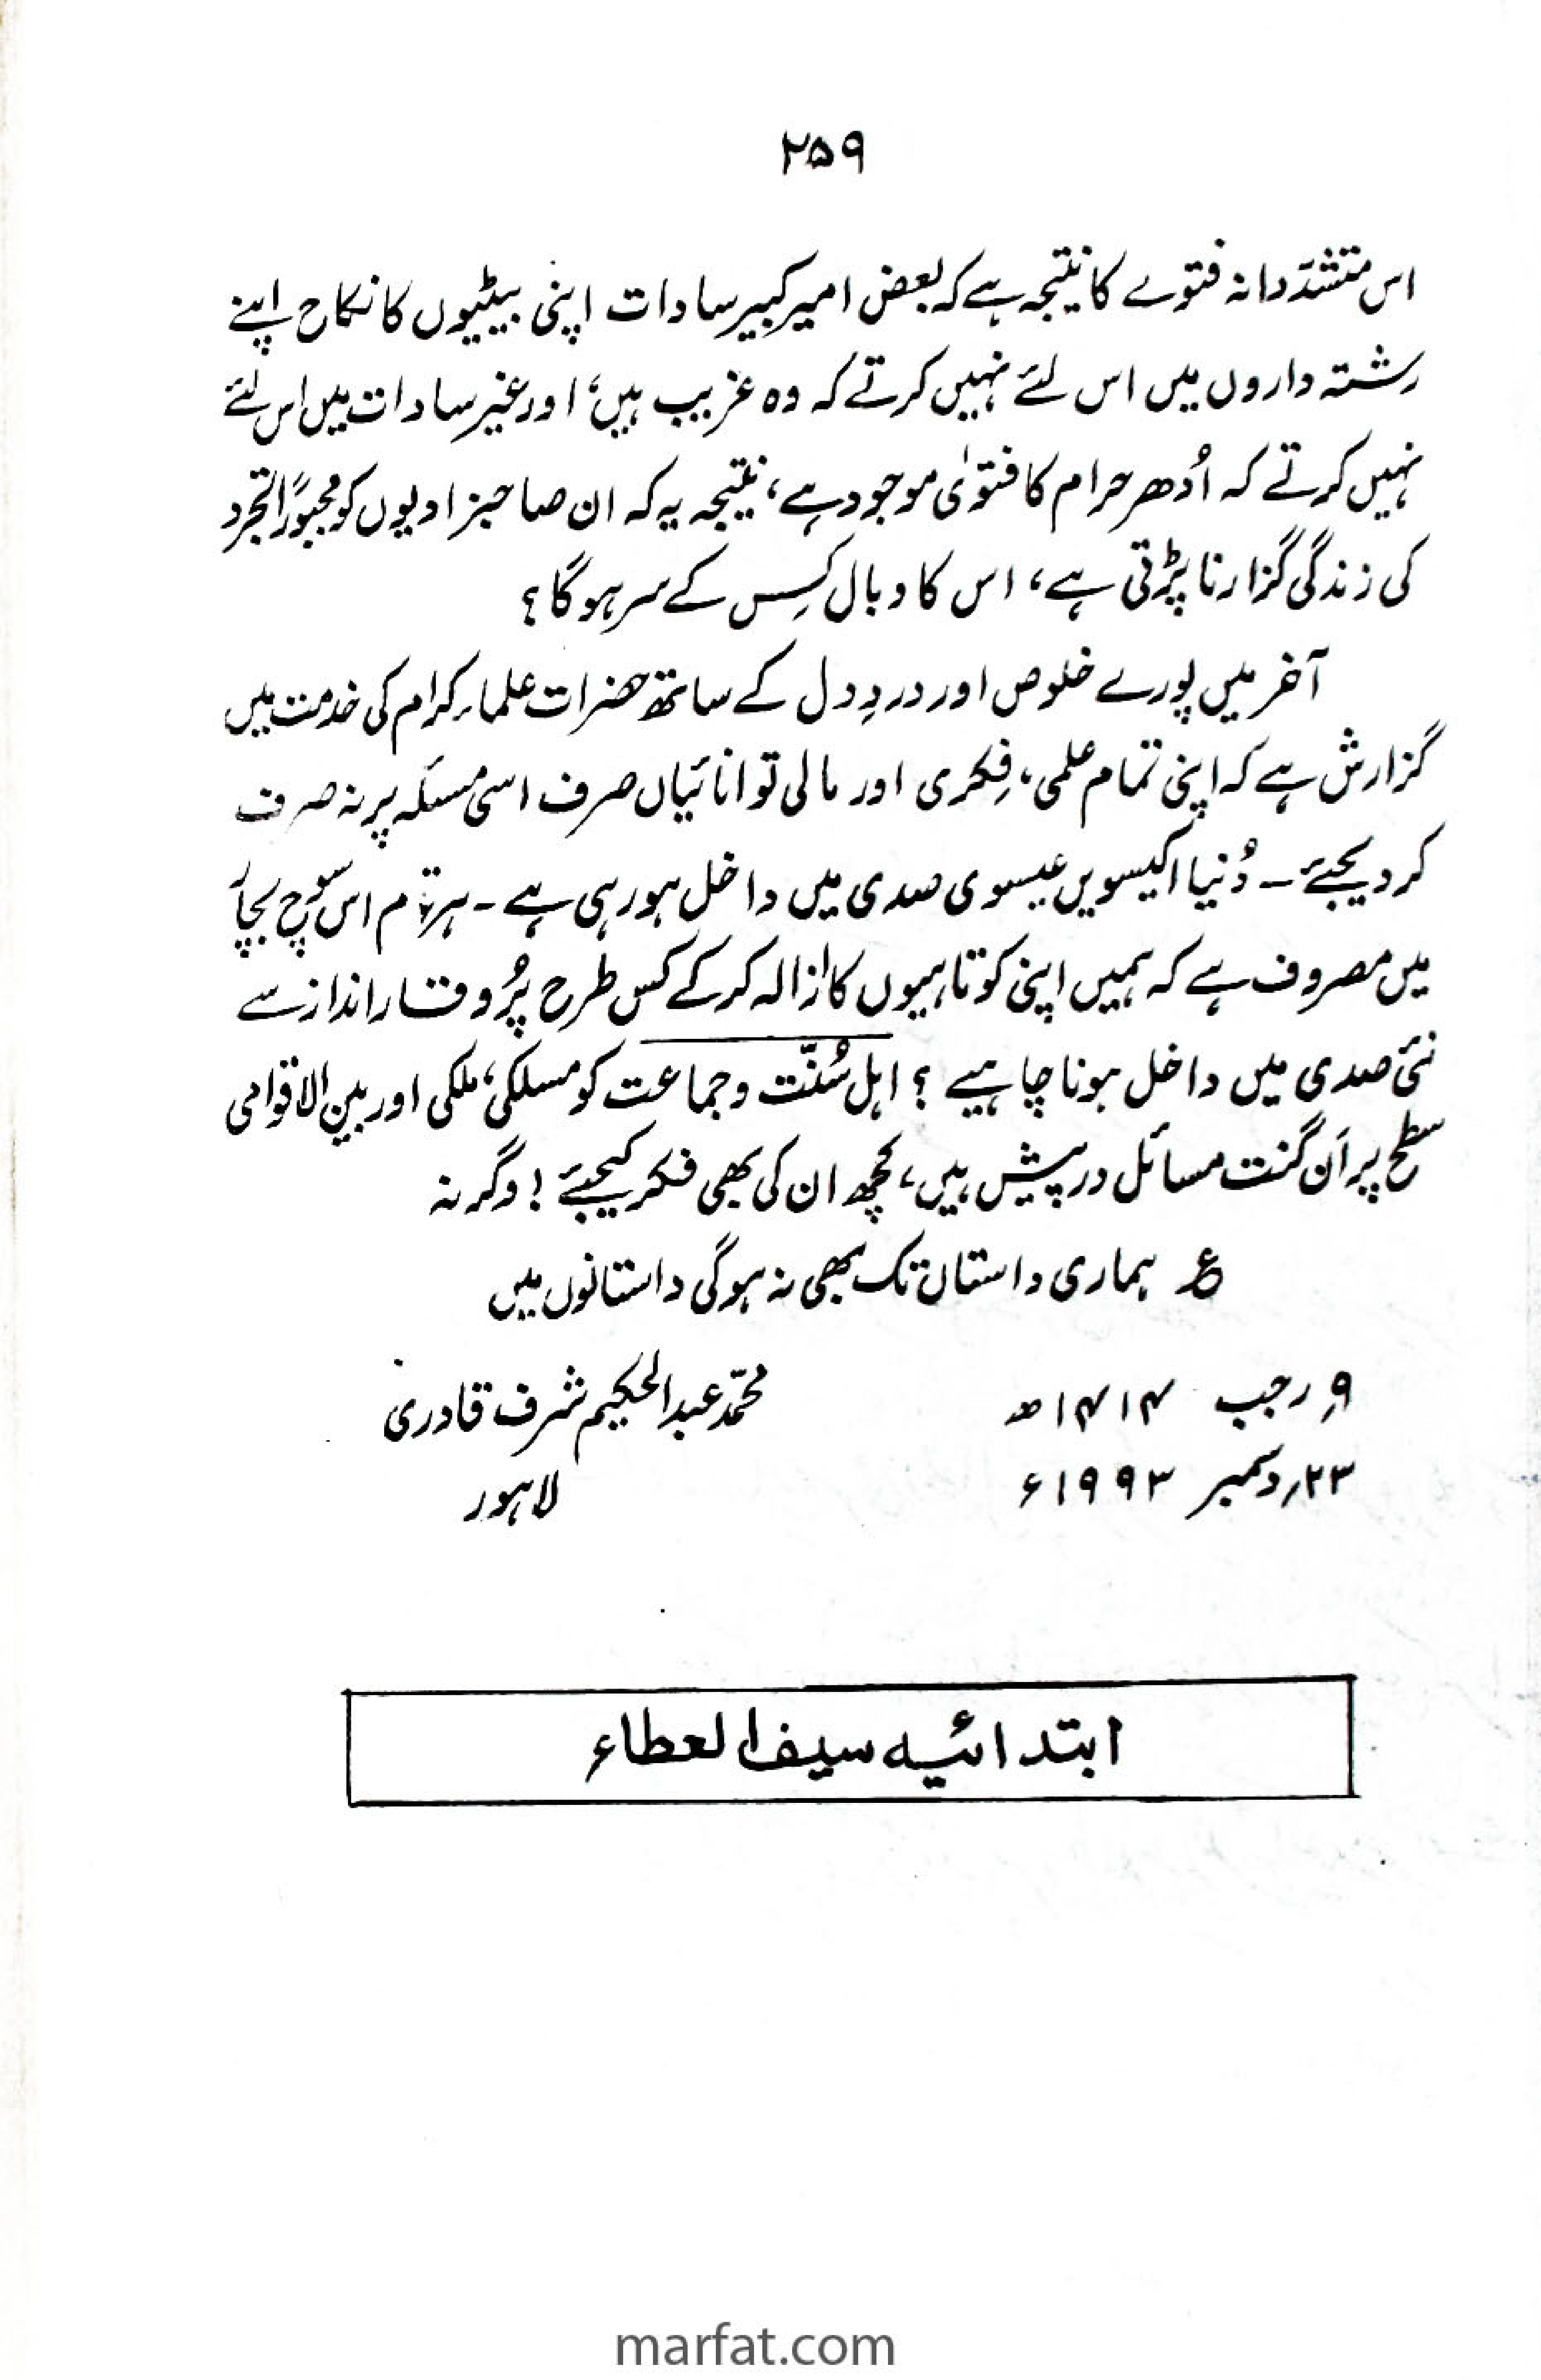 ۲۵۹
اس متشدّدانہ فتوے کا نتیجہ ہے کہ بعض امیر کبیر سادات اپنی بیٹیوں کا نکاح اپنے
رشتہ داروں میں اس لئے نہیں کرتے کہ وہ غریب ہیں، اور غیر سادات میں اس لئے
نہیں کرتے کہ اُدھر حرام کا فتوٰی موجود ہے، نتیجہ یہ کہ ان صاحبزادیوں کو مجبورًا تجرد
کی زندگی گزارنا پڑتی ہے، اس کا وبال کِس کے سر ہوگا؟
آخر میں پورے خلوص اور دردِ دل کے ساتھ حضرات علماء کرام کی خدمت میں
گزارش ہے کہ اپنی تمام علمی، فِکری اور مالی توانائیاں صرف اسی مسئلہ پر نہ صرف
کر دیجئے ـ دُنیا اکیسویں عیسوی صدی میں داخل ہو رہی ہے ـ ہر قوم اس سوچ بچار
میں مصروف ہے کہ ہمیں اپنی کوتاہیوں کا ازالہ کرکے کس طرح پُر وقار انداز سے
نئی صدی میں داخل ہونا چاہیے ؟ اہل سُنّت و جماعت کو مسلکی، ملکی اور بین الاقوامی
سطح پر اَن گنت مسائل درپیش ہیں، کچھ ان کی بھی فکر کیجئے ! وگرنہ
ع ہماری داستان تک بھی نہ ہوگی داستانوں میں
۹؍ رجب ۱۴۱۴ھ محمّد عبدالحکیم شرف قادری
۲۳؍ دسمبر ۱۹۹۳ء لاہور
ابتدائیہ سیف العطاء
marfat.com